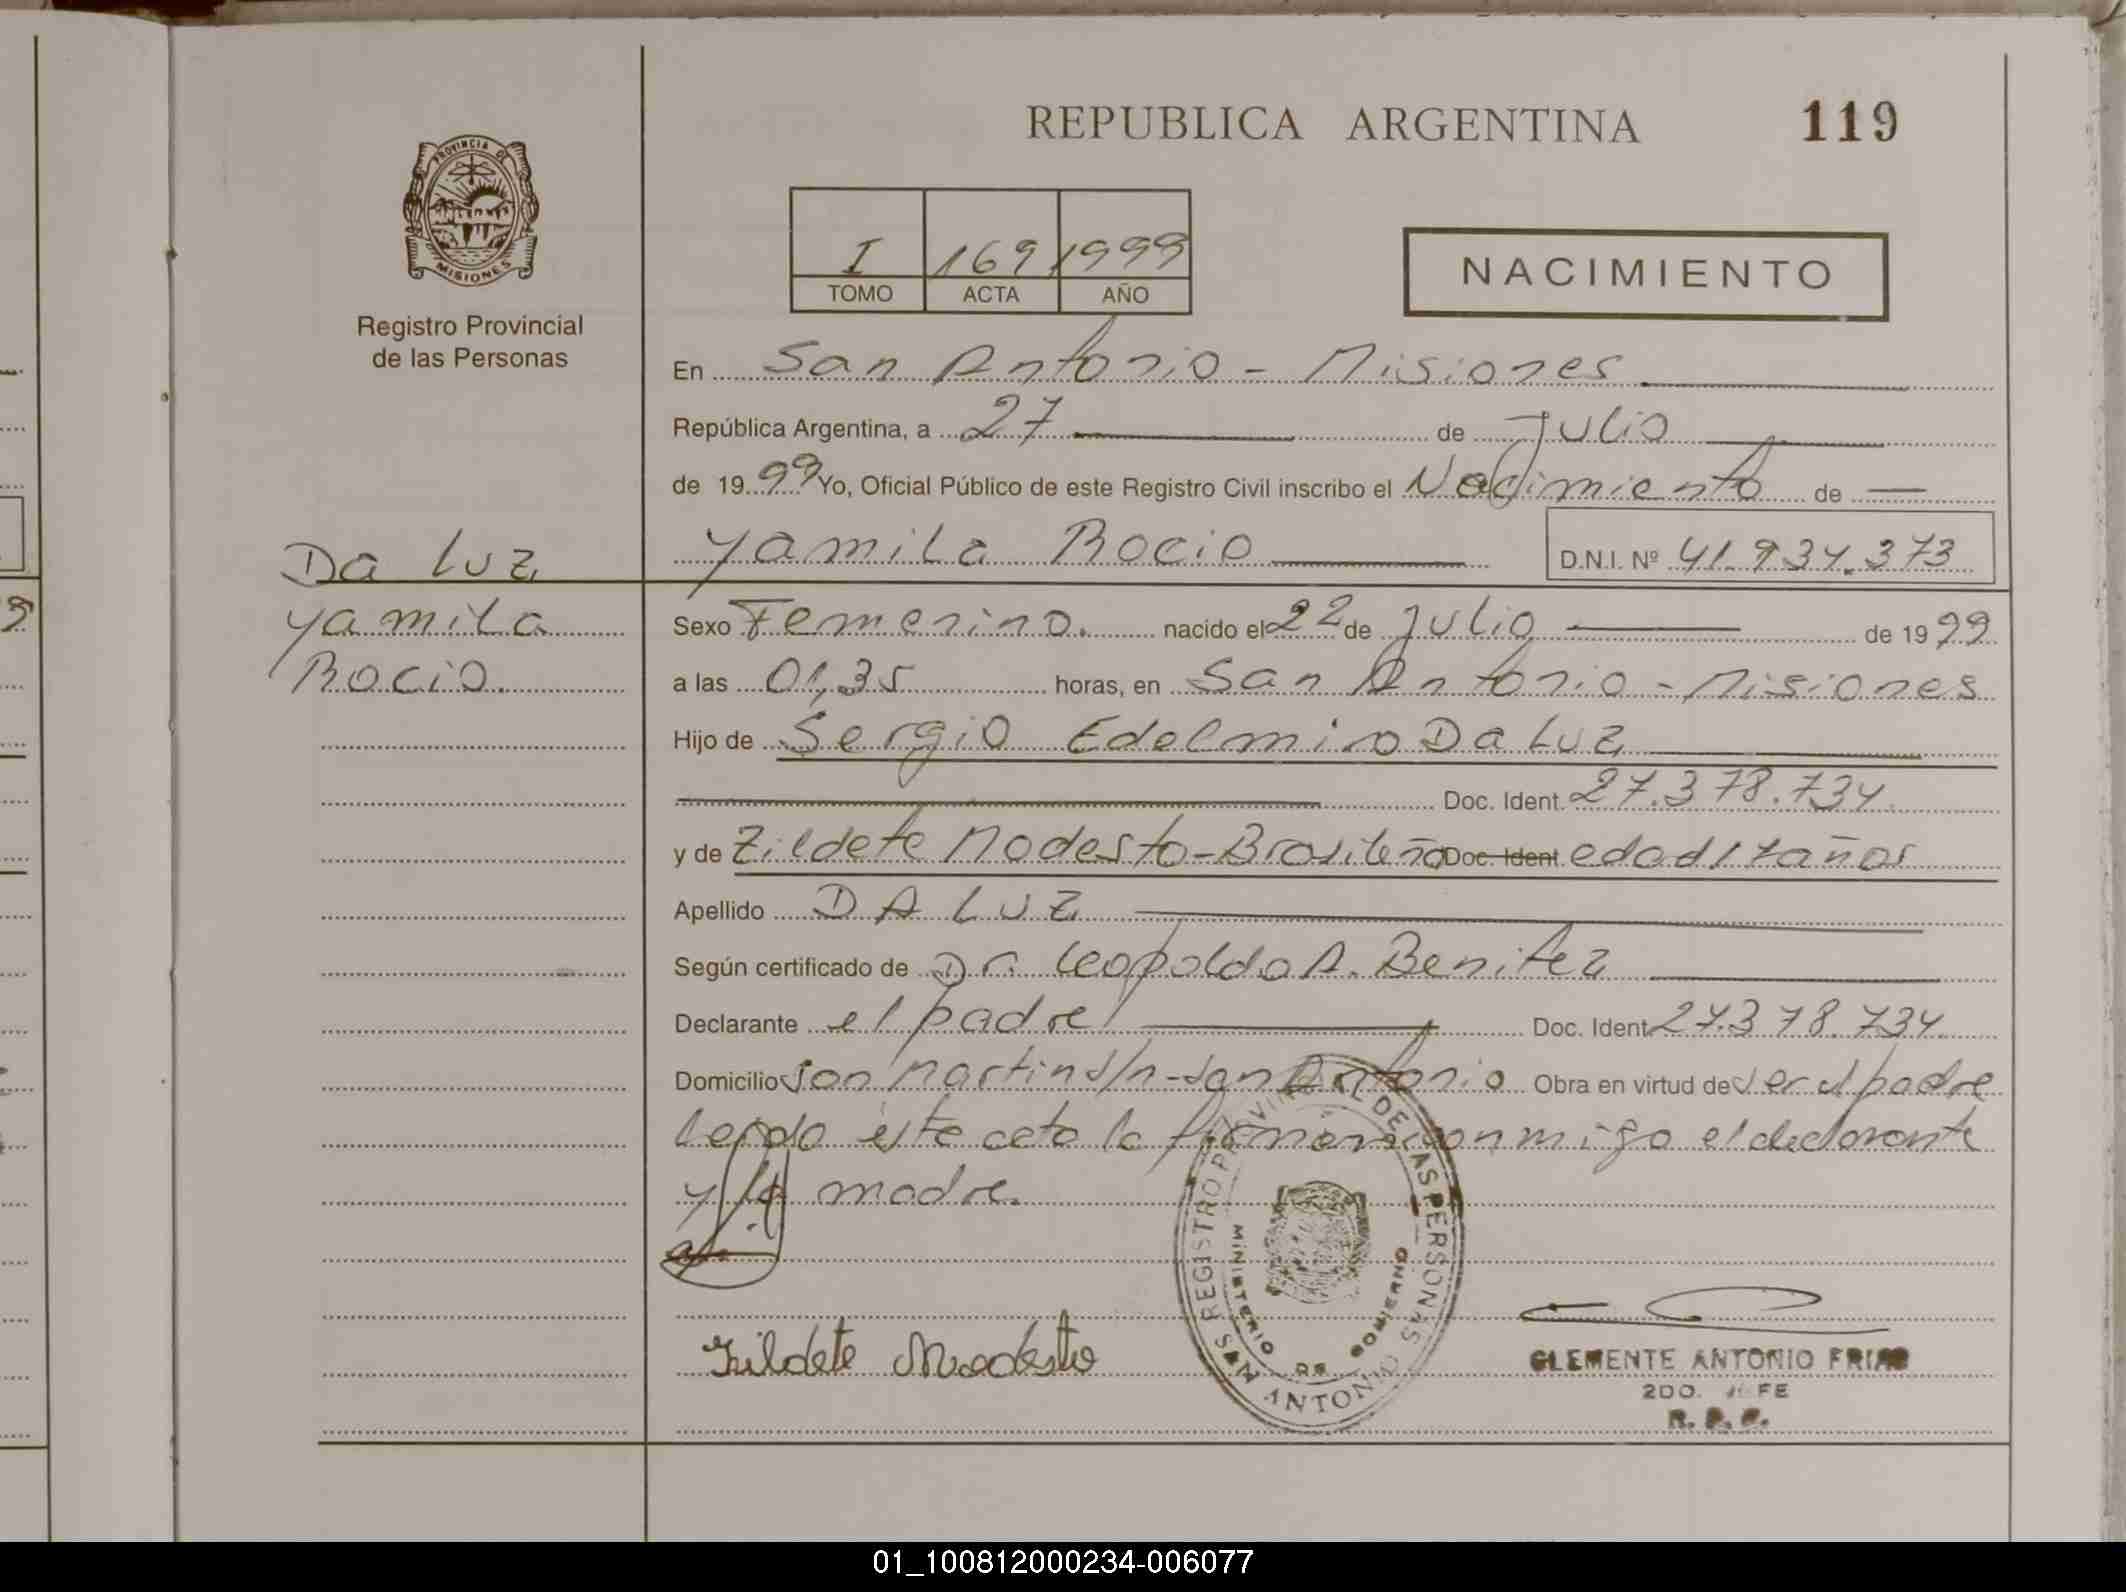 REPUBLICA ARGENTINA
119
PROVINCIA DE
MISIONES
Registro Provincial
de las Personas
I 169 1999
TOMO ACTA AÑO
NACIMIENTO
En San Antonio - Misiones
República Argentina, a 27 de Julio
de 1999 Yo, Oficial Público de este Registro Civil inscribo el Nacimiento de —
Yamila Rocio D.N.I. Nº 41.934.373
Da Luz
Yamila
Rocio.
Sexo Femenino. nacido el 22 de Julio de 1999
a las 01,35 horas, en San Antonio - Misiones
Hijo de Sergio Edelmiro Da Luz
Doc. Ident. 27.378.734
y de Zildete Modesto - Brasileña Doc. Ident edad 17 años
Apellido DA LUZ
Según certificado de Dr. Leopoldo A. Benitez
Declarante el padre Doc. Ident. 27.378.734
Domicilio San Martin s/n - San Antonio Obra en virtud de ser el padre
Leida éste acta la firman conmigo el declarante
y la madre.
Zildete Modesto
REGISTRO PROVINCIAL DE LAS PERSONAS
MINISTERIO DE GOBIERNO
SAN ANTONIO
CLEMENTE ANTONIO FRIAS
2DO. JEFE
01_100812000234-006077